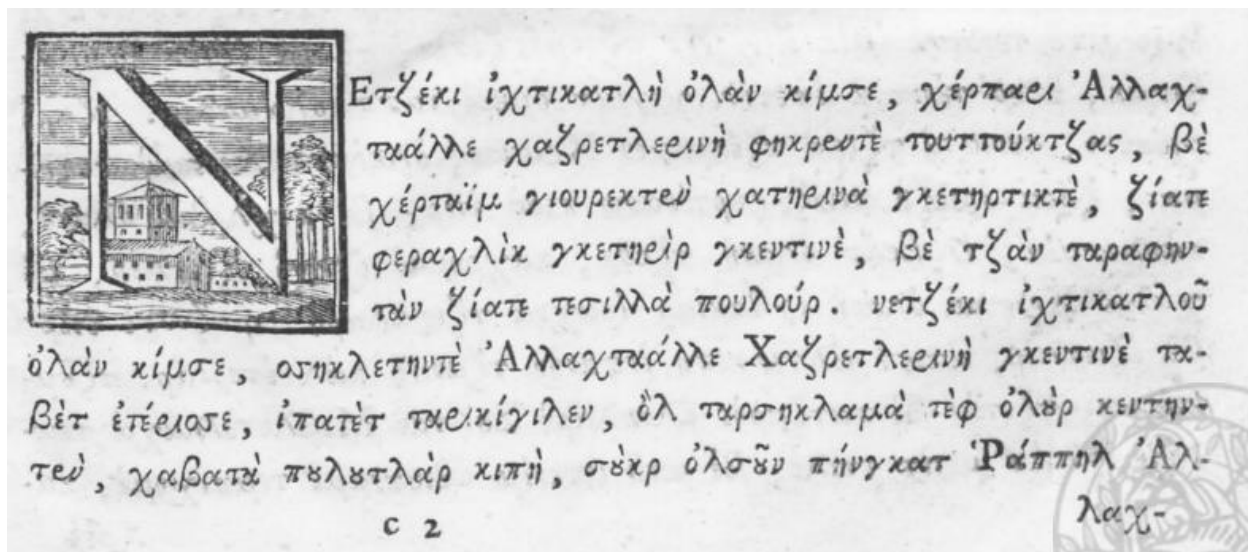 ΝΕτζέκι ἰχτικατλὴ ὀλὰν κίμσε, χέρπαρι Ἀλλαχ-
ταάλλε χαζρετλερινὴ φηκρεντὲ τουττούκτζας, βὲ
χέρταϊμ γιουρεκτεν χατηρινὰ γκετηρτικτὲ, ζίατε
φεραχλὶκ γκετηρὶρ γκεντινὲ, βὲ τζὰν ταραφην-
τὰν ζίατε τεσιλλὰ πουλούρ. νετζέκι ἰχτικατλοῦ
ὀλὰν κίμσε, οσηκλετηντὲ Ἀλλαχταάλλε Χαζρετλερινὴ γκεντινὲ τα-
βὲτ ἐτέριοσε, ἰπατὲτ ταρικίγιλεν, ὂλ ταρσηκλαμὰ τὲφ ὀλὺρ κεντην-
τεν, χαβατὰ πȣλȣτλὰρ κιπὴ, σȣκρ ὀλσῦν πήνγκατ Ῥάππηλ Ἀλ-
C 2 λαχ-